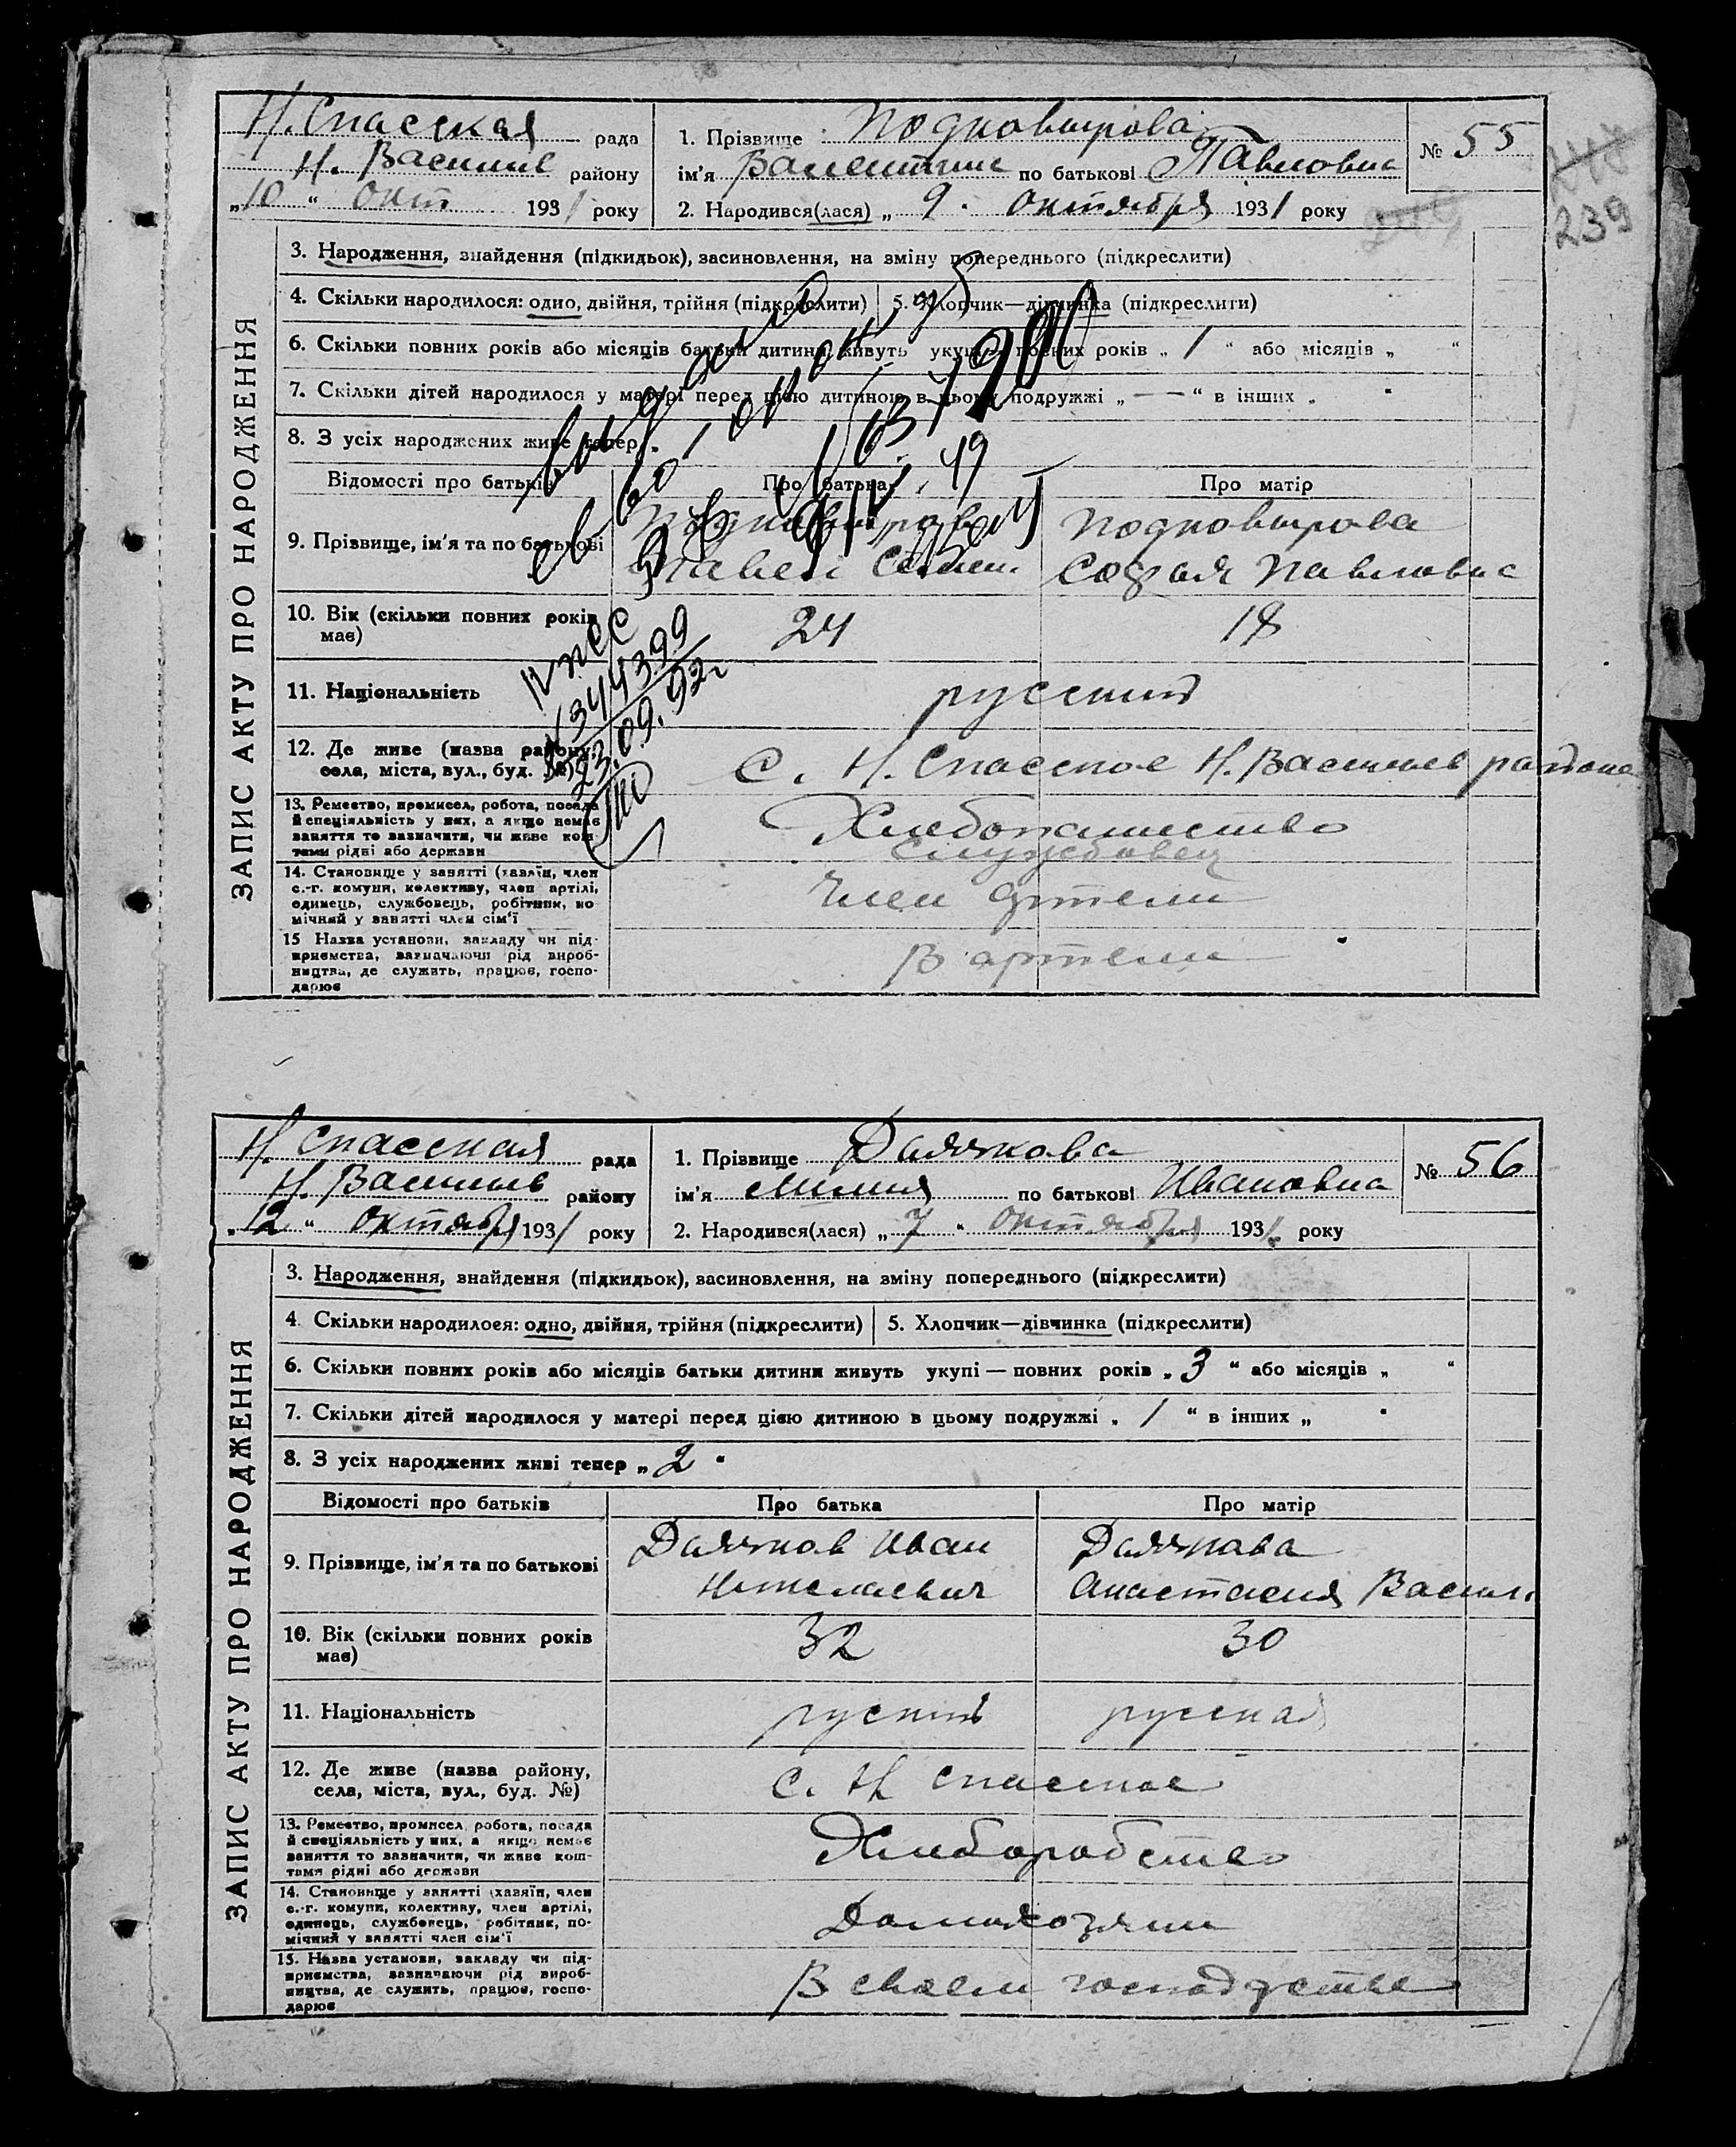 Н. Спасская рада
Н. Васильев району
„10“ Окт 1931 року
1. Прізвище Подковырова
ім'я Валентина по батькові Павловна
2. Народився(лася) „9. Октября 1931 року
№ 55
239
ЗАПИС АКТУ ПРО НАРОДЖЕННЯ
3. Народження, знайдення (підкидьок), засиновлення, на зміну попереднього (підкреслити)
4. Скільки народилося: одно, двійня, трійня (підкреслити)
5. Хлопчик—дівчинка (підкреслити)
6. Скільки повних років або місяців батьки дитини живуть укупі — повних років „1“ або місяців „ “
7. Скільки дітей народилося у матері перед цією дитиною в цьому подружжі „——“ в інших „ “
8. З усіх народжених живі тепер „
Відомості про батьків
Про батька
Про матір
9. Прізвище, ім'я та по батькові
Подковыров
Павел Семен
Подковырова
Софья Павловна
10. Вік (скільки повних років має)
24
18
11. Національність
русский
12. Де живе (назва району, села, міста, вул., буд. №)
с. Н. Спасское Н. Васильев района
13. Ремество, промисел, робота, посада
й спеціяльність у них, а якщо немає
заняття то зазначити, чи живе кош-
тами рідні або держави
Хлебопашество
14. Становище у занятті (хазяїн, член
с.-г. комуни, колективу, член артілі,
одинець, службовець, робітник, по-
мічний у занятті член сім'ї
службовец
член артели
15 Назва установи, закладу чи під-
приємства, зазначаючи рід вироб-
ництва, де служить, працює, госпо-
дарює
В артели
23.09.92г
Н. Спасская рада
Н. Васильев району
„12“ октября 1931 року
1. Прізвище Далячкова
ім'я по батькові Ивановна
2. Народився(лася) „7“ октября 1931. року
№ 56
ЗАПИС АКТУ ПРО НАРОДЖЕННЯ
3. Народження, знайдення (підкидьок), засиновлення, на зміну попереднього (підкреслити)
4. Скільки народилося: одно, двійня, трійня (підкреслити)
5. Хлопчик—дівчинка (підкреслити)
6. Скільки повних років або місяців батьки дитини живуть укупі — повних років „3“ або місяців „ “
7. Скільки дітей народилося у матері перед цією дитиною в цьому подружжі „1“ в інших „ “
8. З усіх народжених живі тепер „2“
Відомості про батьків
Про батька
Про матір
9. Прізвище, ім'я та по батькові
Далячков Иван
Николаевич
Далячкова
Анастасия Васил.
10. Вік (скільки повних років має)
32
30
11. Національність
руский
русская
12. Де живе (назва району, села, міста, вул., буд. №)
с. Н Спасское
13. Ремество, промисел, робота, посада
й спеціяльність у них, а якщо немає
заняття то зазначити, чи живе кош-
тами рідні або держави
Хлеборобство
14. Становище у занятті (хазяїн, член
с.-г. комуни, колективу, член артілі,
одинець, службовець, робітник, по-
мічний у занятті член сім'ї
Домохозяин
15. Назва установи, закладу чи під-
приємства, зазначаючи рід вироб-
ництва, де служить, працює, госпо-
дарює
В своем господрстве